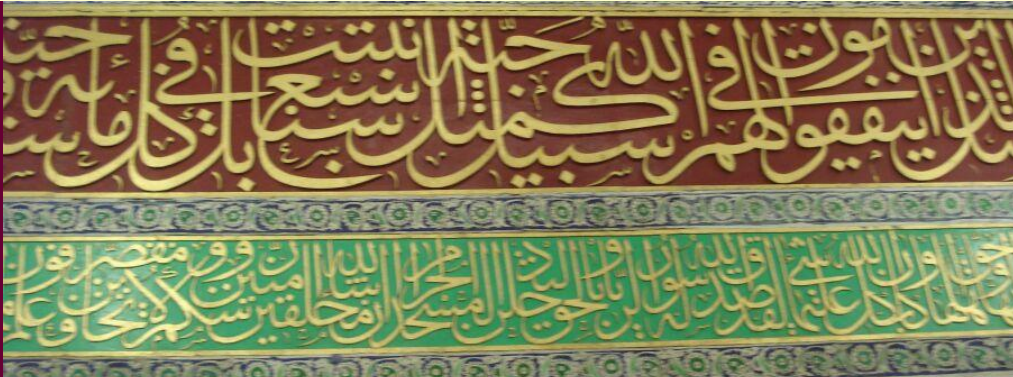 مثل الذين ينفقون اموالهم في سبيل الله كمثل حبة انبتت سبع سنابل في كل سنبلة مائة حبة
واهلها وكان الله بكل شيء عليما لقد صدق الله رسوله الرؤيا بالحق لتدخلن المسجد الحرام ان شاء الله امنين محلقين رؤسكم ومقصرين لا تخافون فعلم